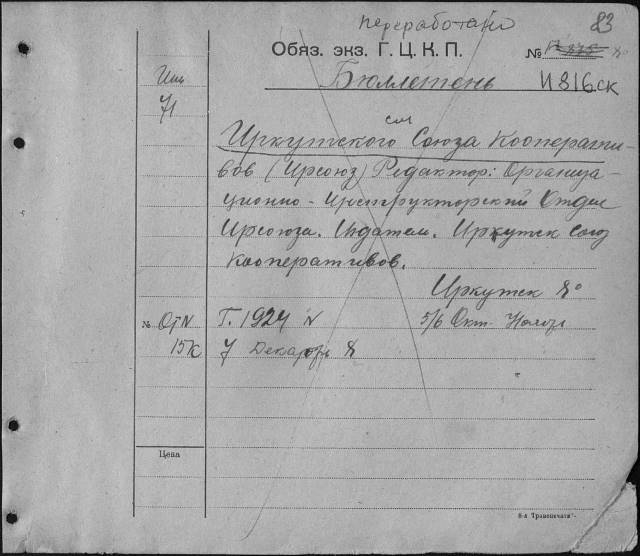 переработано 83
Обяз. экз. Г. Ц. К. П. №
Бюллетень И816ск
71
см
Иркутского Союза Кооперати-
вов (Ирсоюз) Редактор: Организа-
ционно-Инструкторский Отдел
Ирсоюза. Издатель. Иркутск Союз
Кооперативов.
Иркутск 8°
№ От N Г. 1924 N 5/6 Окт. Ноябрь
15к 7 Декабрь 8
Цена
8-я Транспечати".